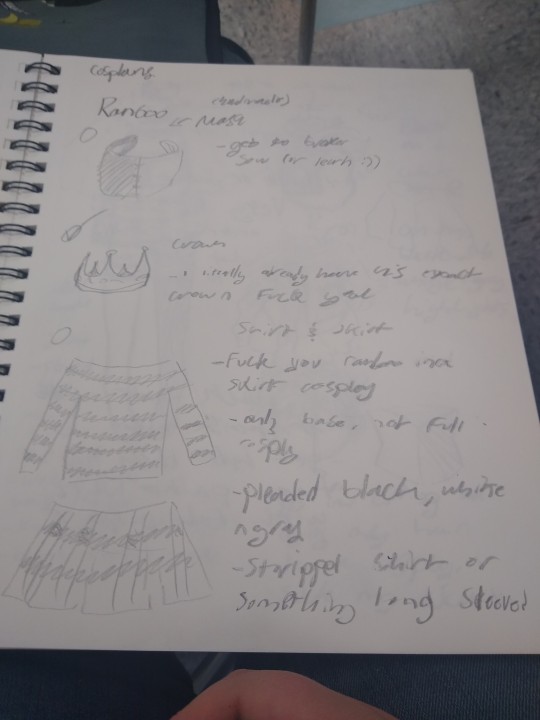 cosplans
Ranboo
(handmade)
Mask
- get
sew (or learn :))
Crown
literally already have this exact
crown Fuck yeah
Shirt & skirt
- Fuck you ranboo
skirt cosplay
- only base, not full
- pleaded black, white
n gray
- Stripped shirt or
something long sleeved